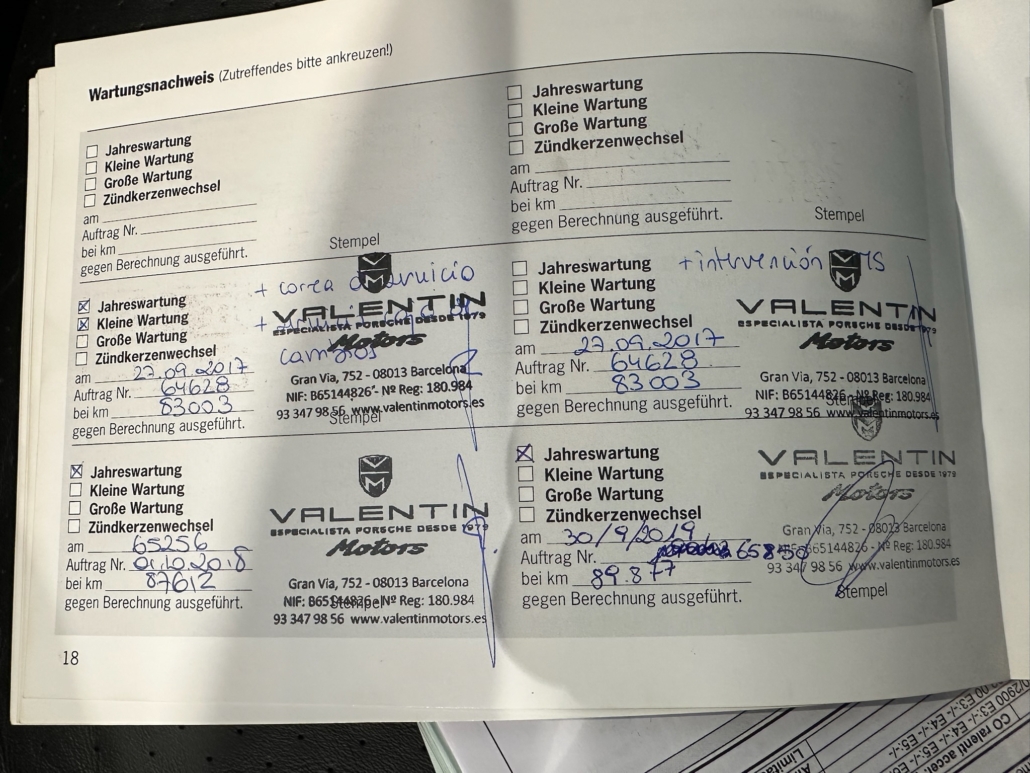 Wartungsnachweis (Zutreffendes bitte ankreuzen!)
Jahreswartung
Kleine Wartung
Große Wartung
Zündkerzenwechsel
am
Auftrag Nr.
bei km
gegen Berechnung ausgeführt.
Stempel
Jahreswartung
Kleine Wartung
Große Wartung
Zündkerzenwechsel
am
Auftrag Nr.
bei km
gegen Berechnung ausgeführt.
Stempel
+ correa
Jahreswartung
Kleine Wartung
Große Wartung
Zündkerzenwechsel
am 27.09.2017
Auftrag Nr. 64628
bei km 83003
gegen Berechnung ausgeführt.
VALENTIN
ESPECIALISTA PORSCHE DESDE 1979
Motors
Gran Via, 752 - 08013 Barcelona
NIF: B65144826 - Nº Reg: 180.984
93 347 98 56 www.valentinmotors.es
Stempel
+ intervención IMS
Jahreswartung
Kleine Wartung
Große Wartung
Zündkerzenwechsel
am 27.09.2017
Auftrag Nr. 64628
bei km 83003
gegen Berechnung ausgeführt.
VALENTIN
ESPECIALISTA PORSCHE DESDE 1979
Motors
Gran Via, 752 - 08013 Barcelona
NIF: B65144826 - Nº Reg: 180.984
93 347 98 56 www.valentinmotors.es
Stempel
Jahreswartung
Kleine Wartung
Große Wartung
Zündkerzenwechsel
am 65256
Auftrag Nr. 01.10.2018
bei km 87612
gegen Berechnung ausgeführt.
VALENTIN
ESPECIALISTA PORSCHE DESDE 1979
Motors
Gran Via, 752 - 08013 Barcelona
NIF: B65144826 - Nº Reg: 180.984
93 347 98 56 www.valentinmotors.es
Stempel
Jahreswartung
Kleine Wartung
Große Wartung
Zündkerzenwechsel
am 30/9/2019
Auftrag Nr. 65850
bei km 89.877
gegen Berechnung ausgeführt.
VALENTIN
ESPECIALISTA PORSCHE DESDE 1979
Motors
Gran Via, 752 - 08013 Barcelona
NIF: B65144826 - Nº Reg: 180.984
93 347 98 56 www.valentinmotors.es
Stempel
18
CO ralenti